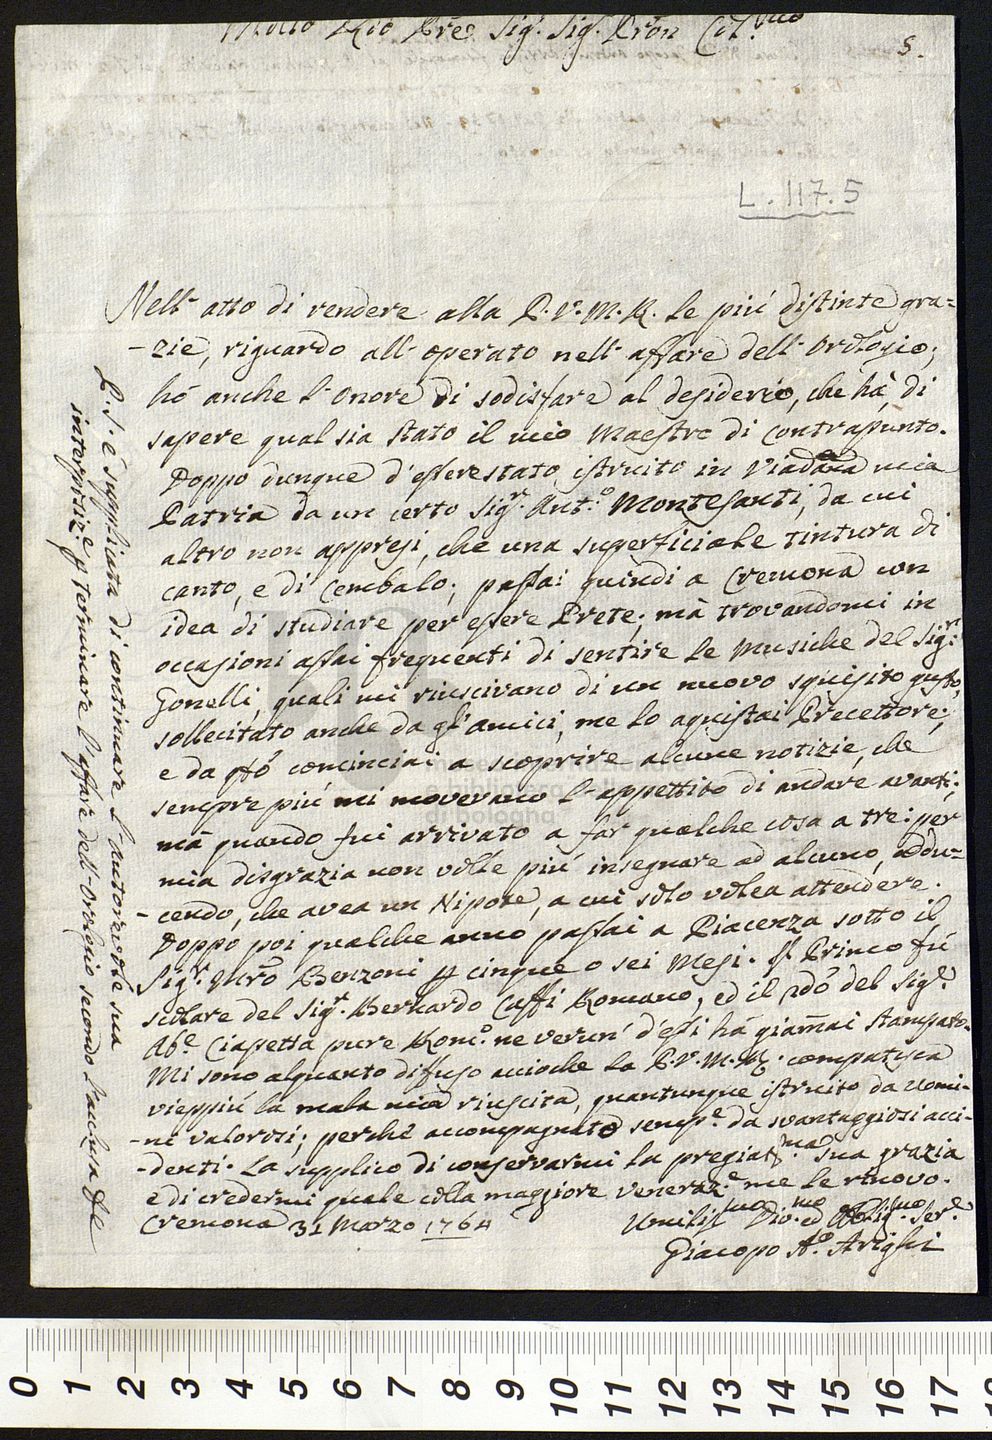 Molto Rdo Pre Sig.r Sig.r Pron Col.mo
5.
L. 117.5
Nell' atto di rendere alla P. V. M. R. le più distinte gra=
-zie, riguardo all' operato nell' affare dell' Orologio;
hò anche l' Onore di sodisfare al desiderio, che hà, di
sapere qual sia stato il mio Maestro di Contrapunto.
Doppo dunque d'esser stato istruito in Viadana mia
Patria da un certo Sig.r Ant.o Montesanti, da cui
altro non appresi, che una superficiale tintura di
canto, e di Cembalo; passai quindi a Cremona con
idea di studiare per essere Prete; mà trovandomi in
occasioni assai frequenti di sentire le Musiche del Sig.r
Gonelli, quali mi riuscivano di un nuovo squisito gusto,
sollecitato anche da gl' amici, me lo aquistai Precettore;
e da qsto cominciai a scoprire alcune notizie, che
sempre più mi movevano l' appettito di andare avanti;
mà quando fui arrivato a far qualche cosa a tre: per
mia disgrazia non volle più insegnare ad alcuno, addu=
-cendo, che avea un Nipote, a cui solo volea attendere.
Doppo poi qualche anno passai a Piacenza sotto il
Sig.r Benzoni p cinque o sei Mesi. Il Primo fù
scolare del Sig.r Bernardo Caffi Romano, ed il 2do del Sig.e
Ab.e Ciapetta pure Rom.o ne verun' d'essi hà giammai stampato.
Mi sono alquanto difuso acciochè la P. V. M. R. compatisca
vieppiù la mala mia riuscita, quantunque istruito da Uomi-
-ni valorosi; perchè accompagnato semp.e da svantaggiosi acci-
-denti. La supplico di conservarmi la pregiat.ma sua grazia
e di credermi quale colla maggiore veneraz.e me le rinovo.
Cremona 31 Marzo 1764
Umiliss.mo Div.mo ed Obblig.mo Ser.e
Giacopo A.o Arighi
P. S. è supplicata di continuare l' autorevole sua
interposiz.e p terminare l' affare dell' Orologio secondo l' acclusa
museo internazionale
e biblioteca della musica
di bologna
0 1 2 3 4 5 6 7 8 9 10 11 12 13 14 15 16 17